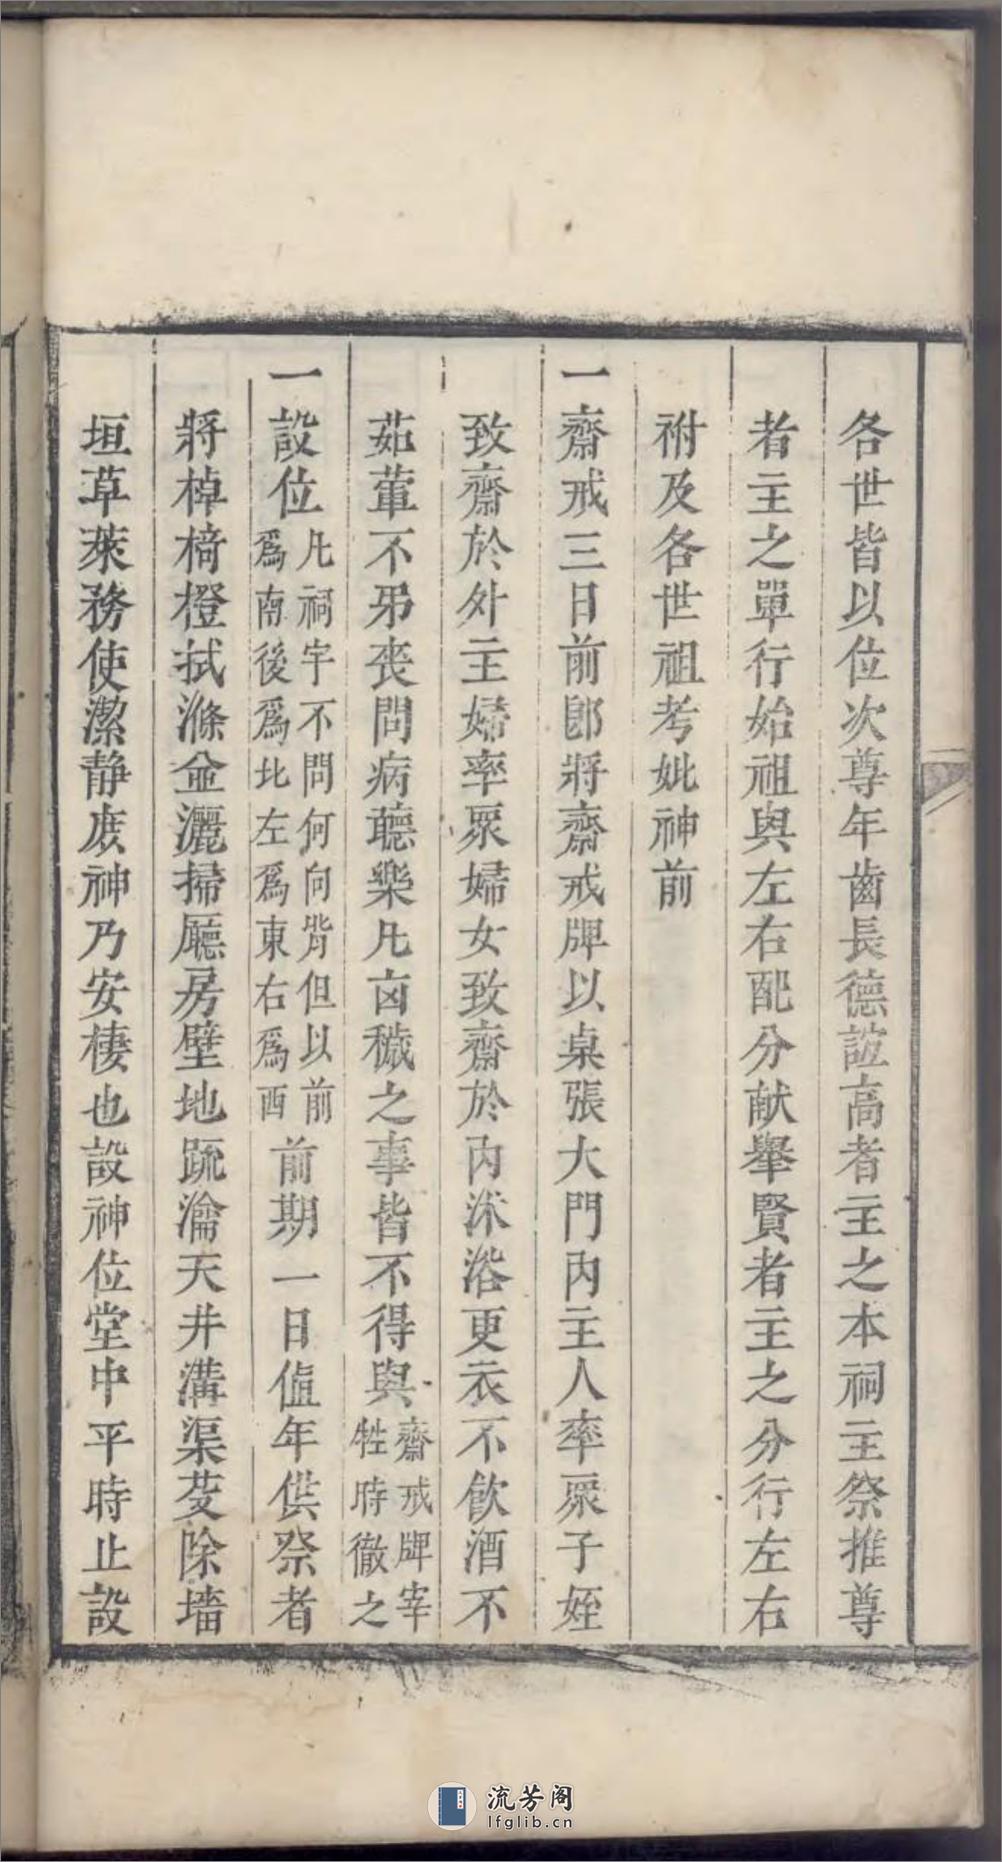 各世皆以位次尊年齒長德誼高者主之本祠主祭推尊
者主之單行始祖與左右配分献舉賢者主之分行左右
祔及各世祖考妣神前
一齋戒三日前卽將齋戒牌以桌張大門内主人率眾子姪
致齋於外主婦率眾婦女致齋於内沐浴更衣不飲酒不
茹葷不弔丧問病聽樂凡凶穢之事皆不得與齋戒牌宰牲時徹之
一設位凡祠宇不問何向背但以前爲南後爲北左爲東右爲西前期一日值年供祭者
將棹椅橙拭滌並灑掃廳房壁地疏瀹天井溝渠芟除墻
垣草萊務使潔静庶神乃安棲也設神位堂中平時止設
流芳阁
lfglib.cn